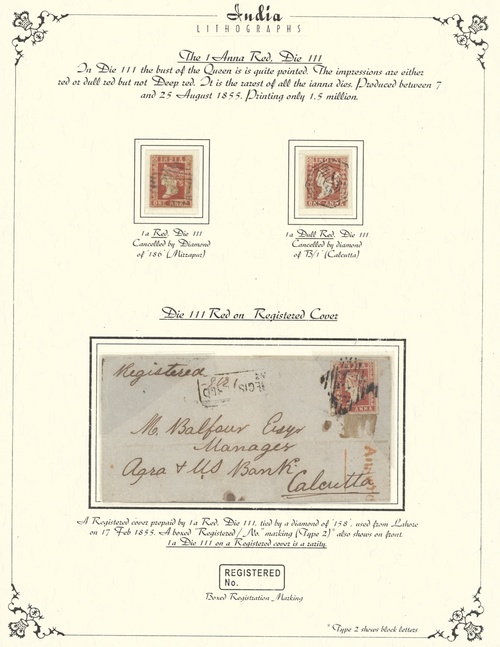 India
LITHOGRAPHS
The 1 Anna Red, Die III
In Die III the bust of the Queen is is quite pointed. The impressions are either
red or dull red but not Deep red. It is the rarest of all the 1anna dies. Produced between 7
and 25 August 1855. Printing only 1.5 million.
INDIA
ONE ANNA
INDIA
ONE ANNA
1a Red, Die III
Cancelled by Diamond
of '186' (Mirzapur)
1a Dull Red, Die III
Cancelled by diamond
of 'B/1' (Calcutta)
Die III Red on Registered Cover
Registered
M. Balfour Esqr
Manager
Agra & US Bank
Calcutta
ANNA
A Registered cover prepaid by 1a Red, Die III, tied by a diamond of '158', used from Lahore
on 17 Feb 1855. A boxed "Registered / No." marking (Type 2)* also shows on front.
1a Die III on a Registered cover is a rarity.
REGISTERED
No.
Boxed Registration Marking
*Type 2 shows block letters